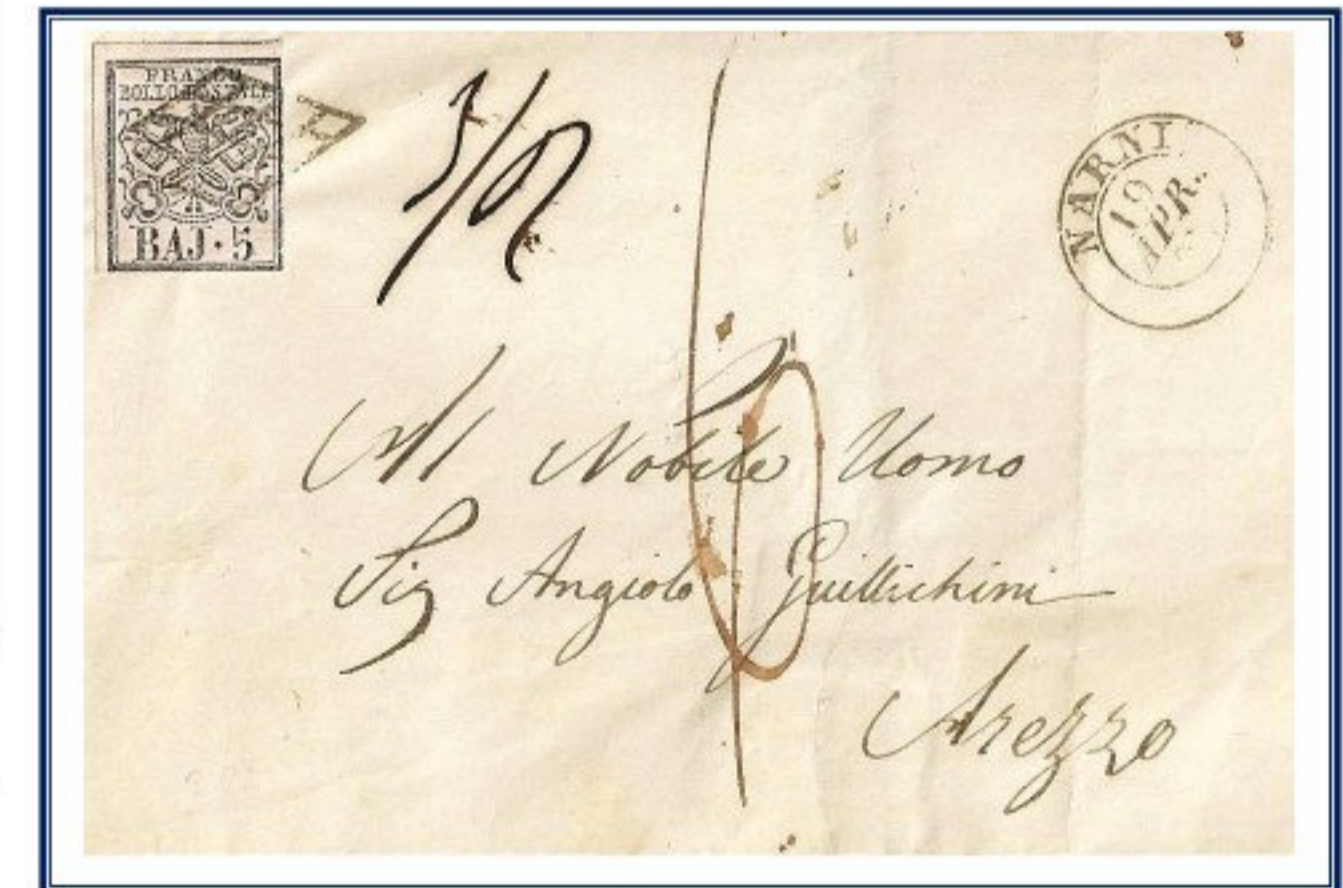 FRANCO
BOLLO POSTALE
BAJ · 5
A
NARNI
19
APR.
Al Nobile Uomo
Sig Angiolo Guillichini
Arezzo